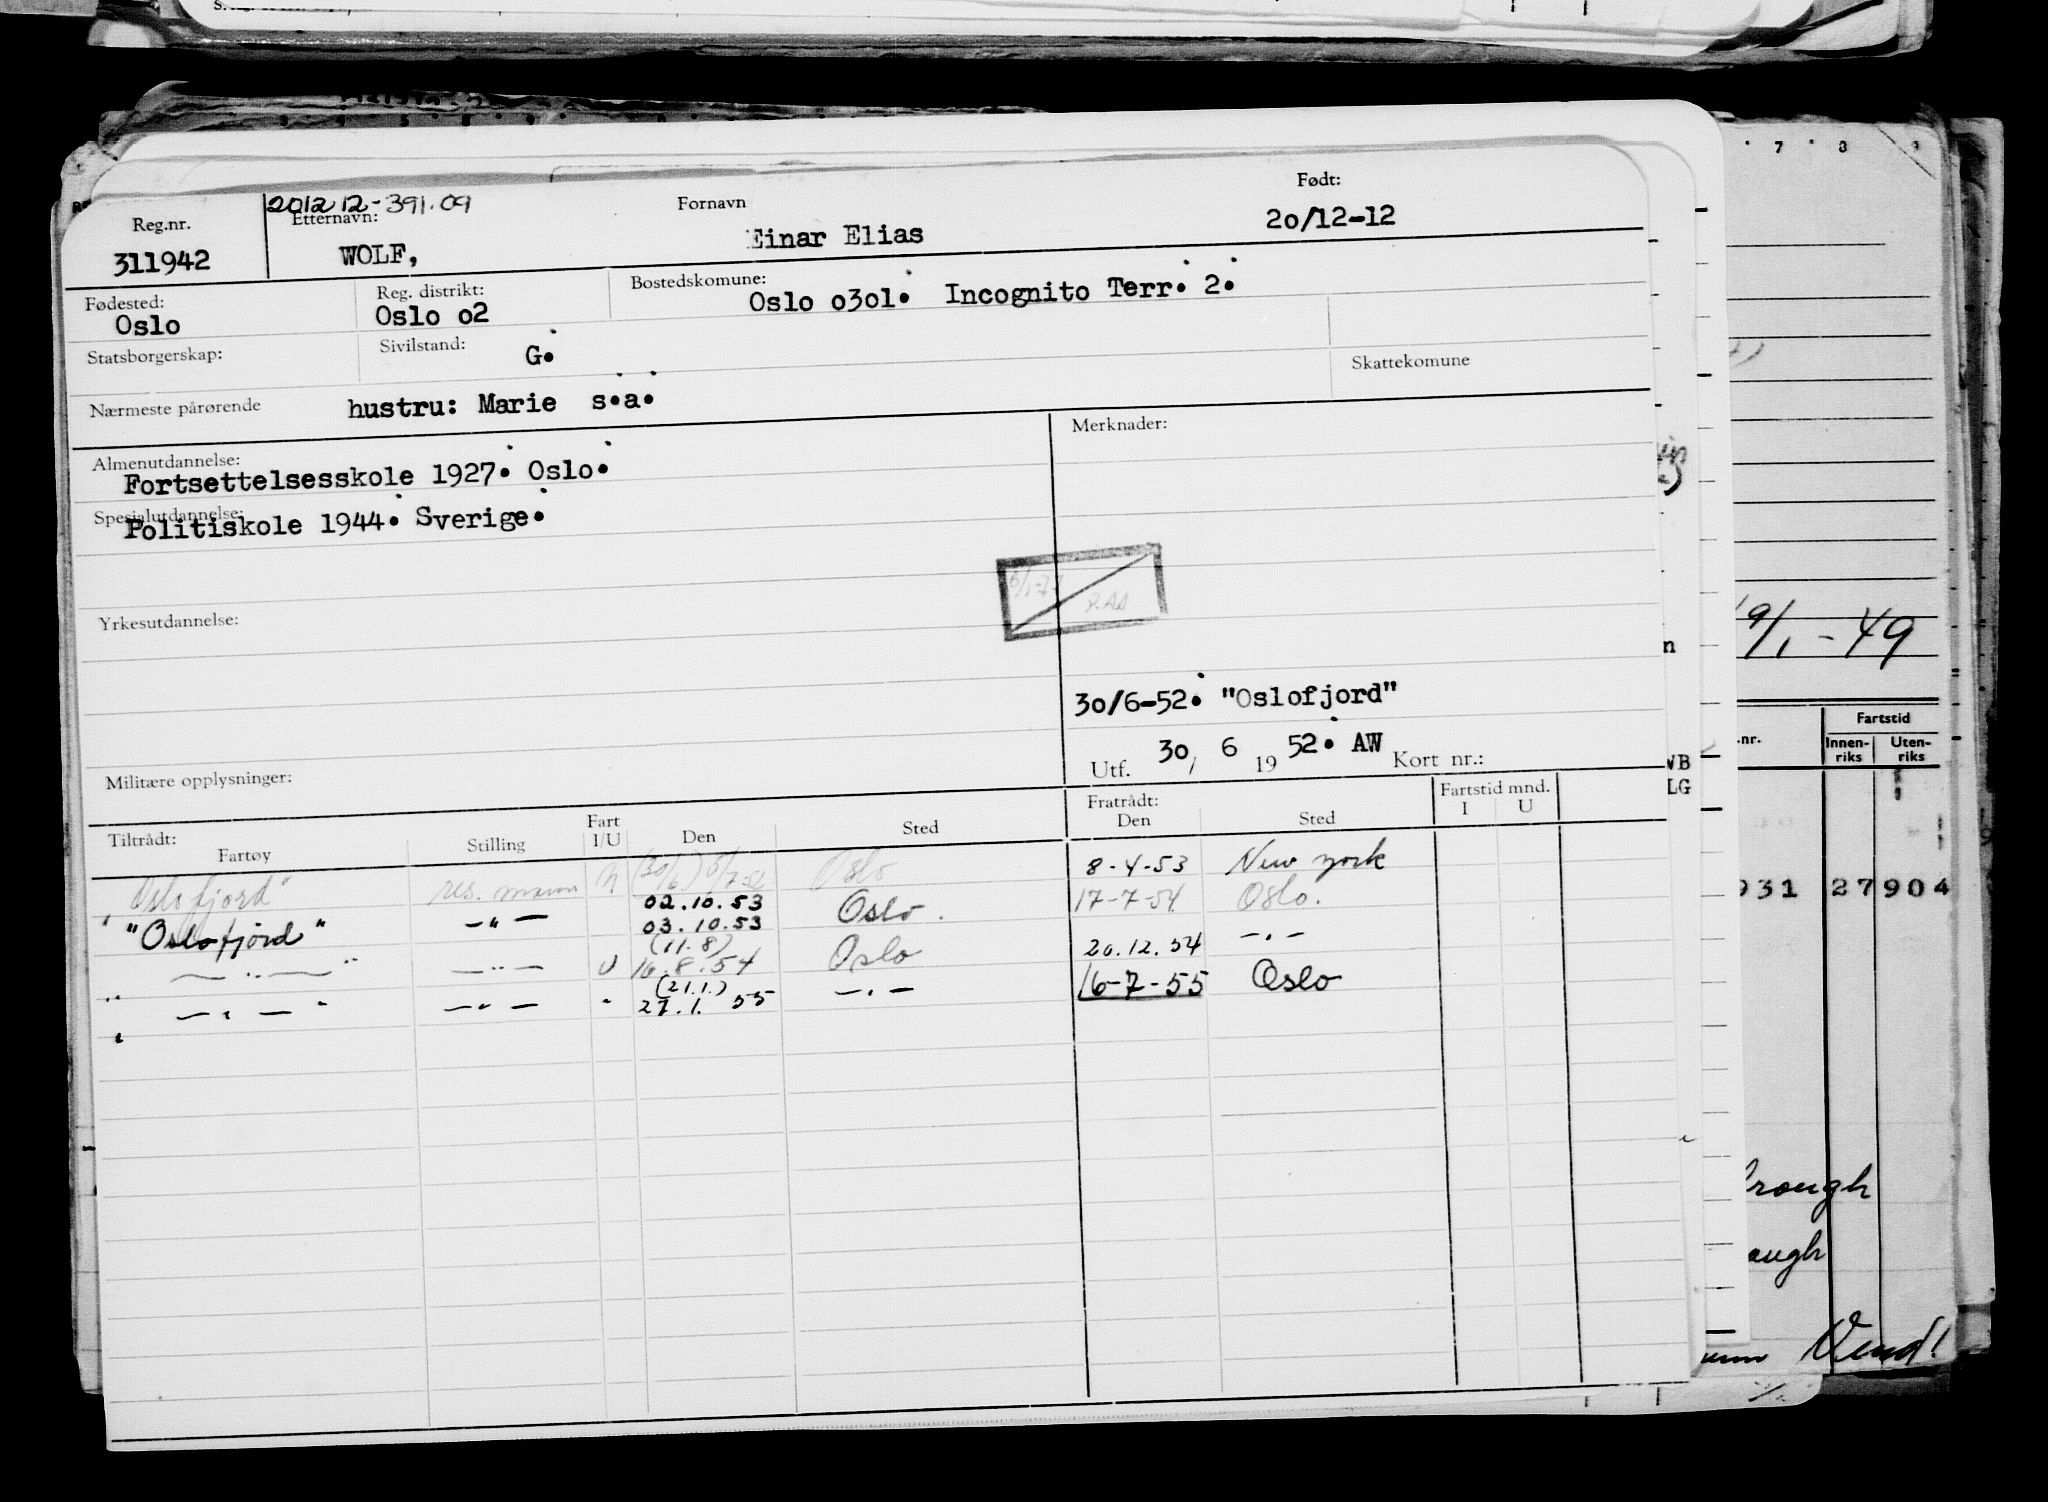 201212-391.09
Reg.nr. Etternavn: Fornavn Født:
311942 WOLF, Einar Elias 20/12-12
Fødested: Reg. distrikt: Bostedskomune:
Oslo Oslo o2 Oslo o3o1. Incognito Terr. 2.
Statsborgerskap: Sivilstand: G. Skattekomune
Nærmeste pårørende hustru: Marie s.a.
Almenutdannelse: Merknader:
Fortsettelsesskole 1927. Oslo.
Spesialutdannelse:
Politiskole 1944. Sverige.
Yrkesutdannelse:
30/6-52. "Oslofjord"
Utf. 30, 6 1952. AW Kort nr.:
Militære opplysninger:
Tiltrådt: Fratrådt: Fartstid mnd.
Fartøy Stilling Fart I/U Den Sted Den Sted I U
"Oslofjord" res. mann (30/6) 5/7-52 Oslo 8-4-53 New York
02.10.53
"Oslofjord" -"- 03.10.53 Oslo. 17-7-54 Oslo.
(11.8)
-"- -"- U 16.8.54 Oslo 20.12.54 -"-
(21.1.)
-"- -"- " 27.1. 55 -"- 16-7-55 Oslo
7 8 9
9/1-49
.nr. Fartstid
Innen-riks Uten-riks
VB
LG
931 27904
rough
ough
Vend!